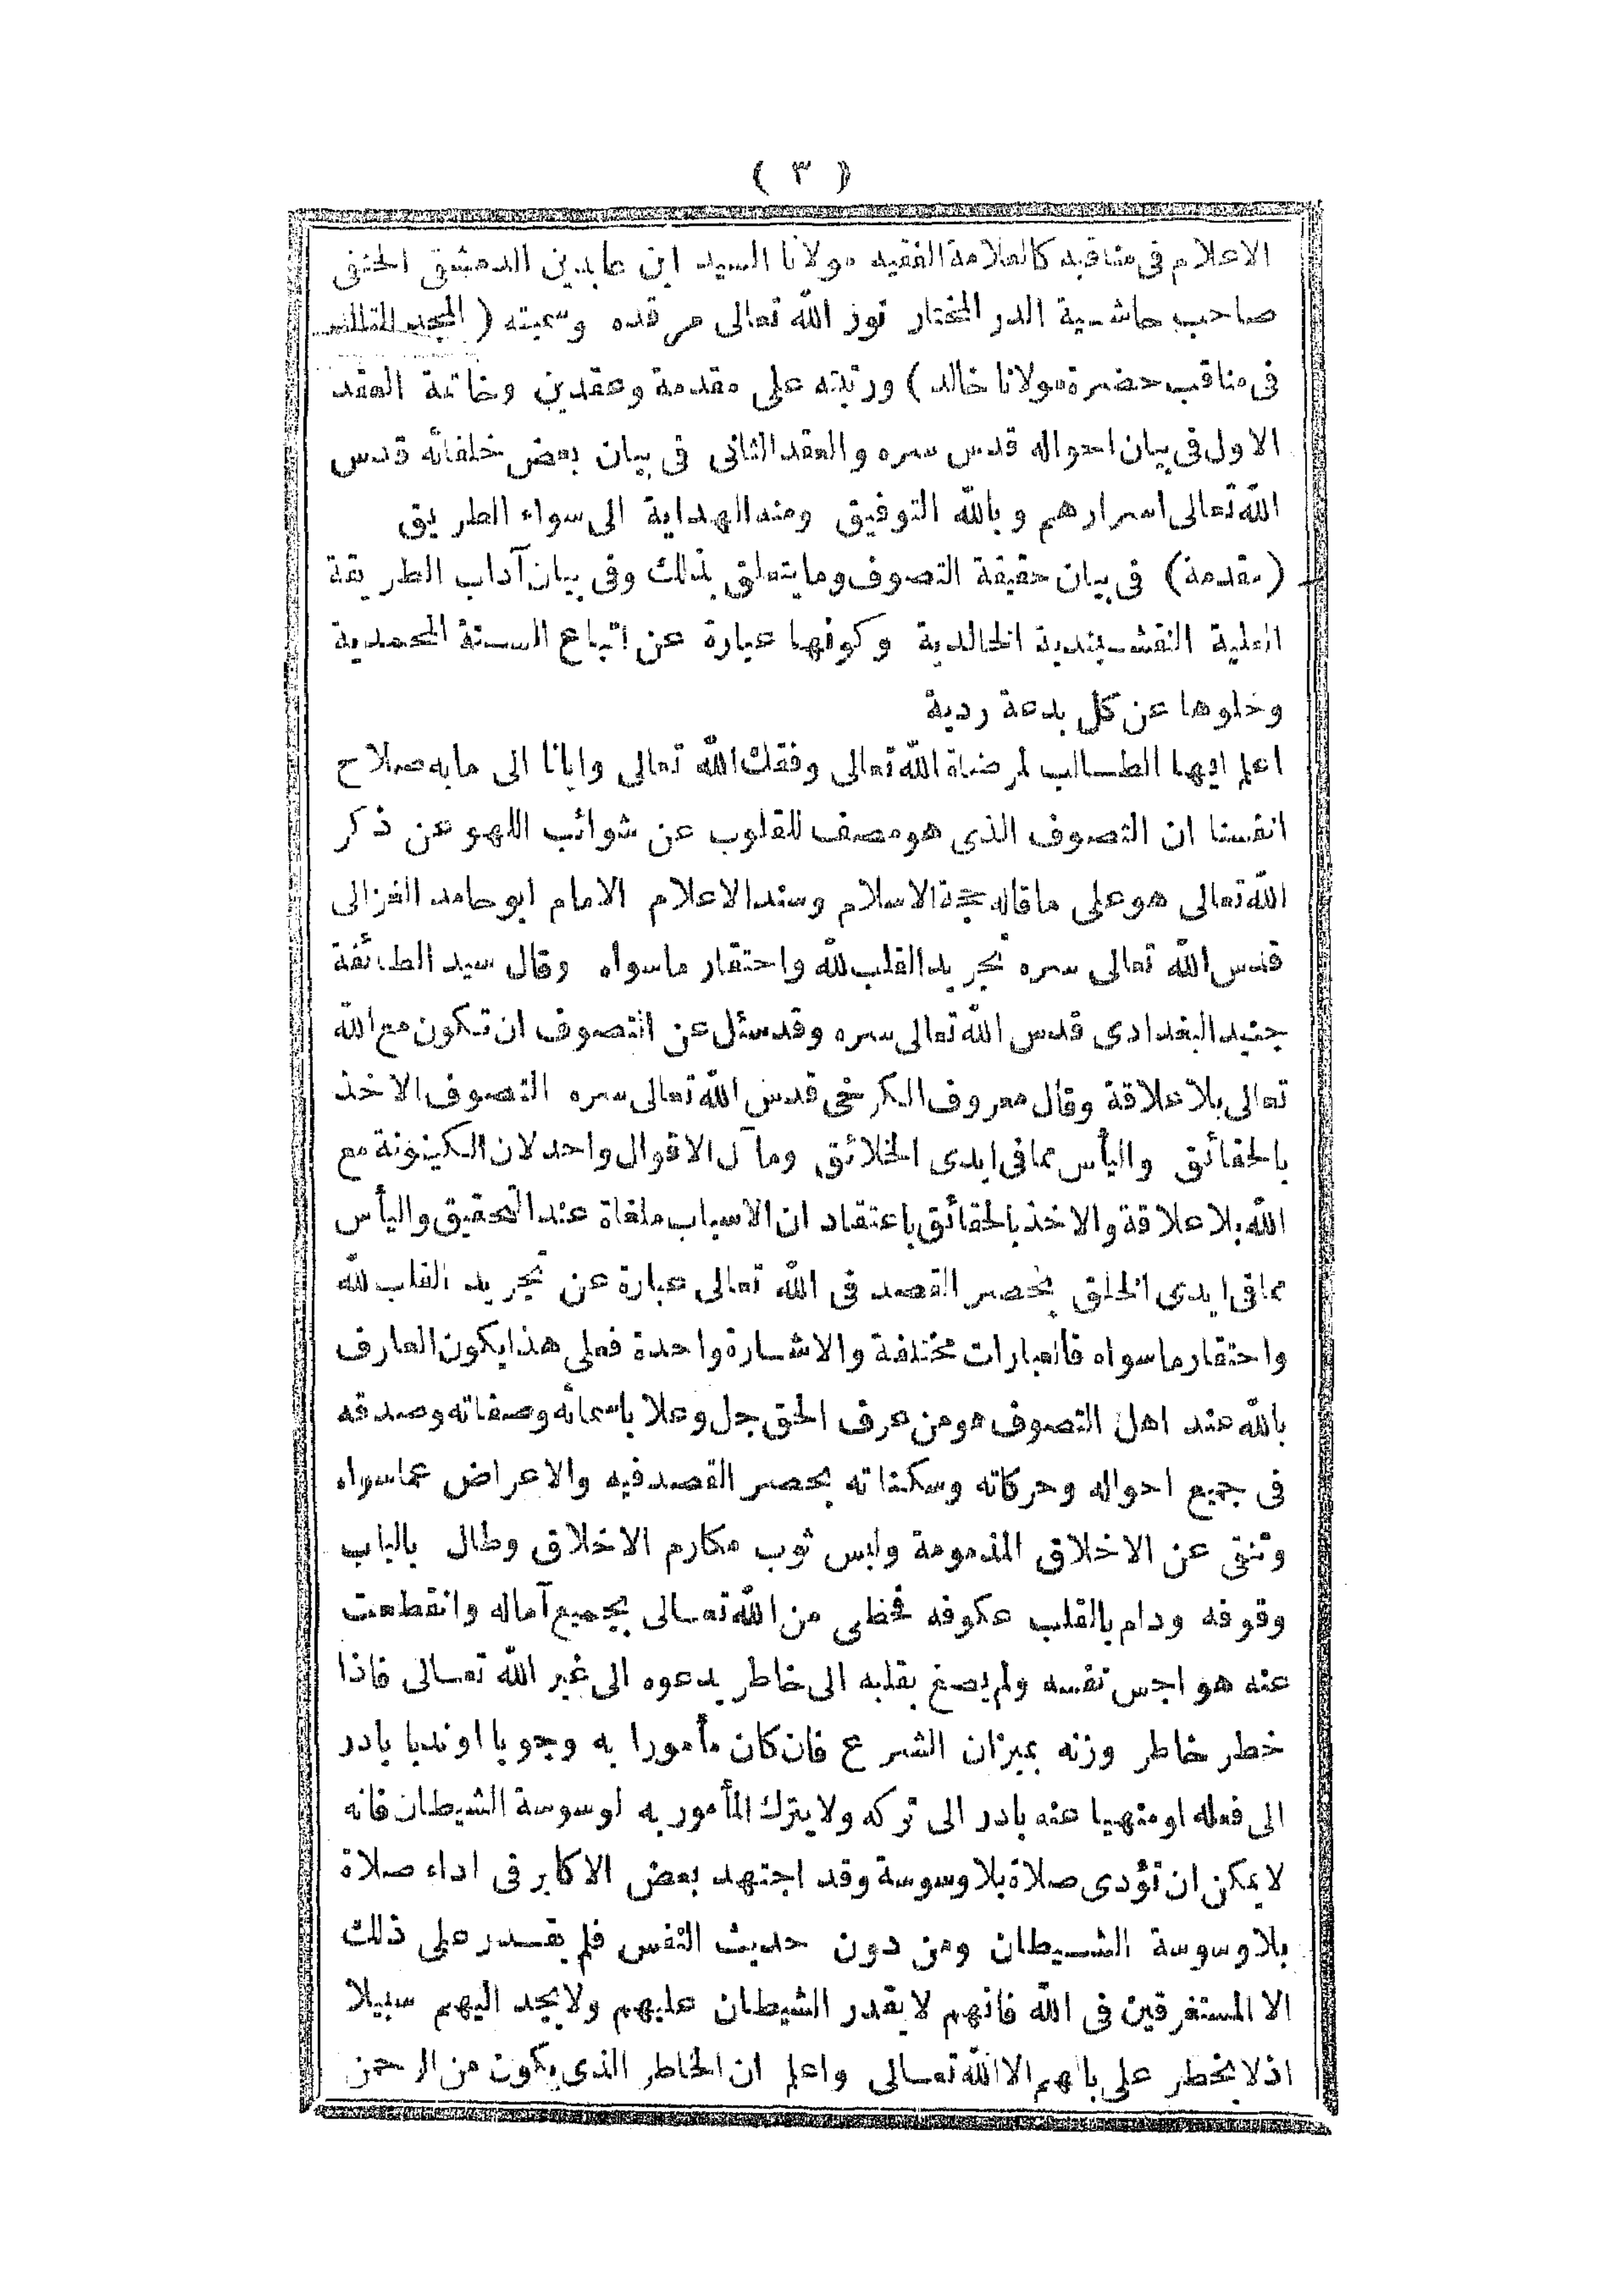 ( ٣ )
الاعلام فى مناقبه كالعلامة الفقيه مولانا السيد ابن عابدين الدمشقى الحنفى
صاحب حاشية الدر المختار نور الله تعالى مرقده وسميته ( المجد التالد
فى مناقب حضرة مولانا خالد ) ورتبته على مقدمة وعقدين وخاتمة العقد
الاول فى بيان احواله قدس سره والعقد الثانى فى بيان بعض خلفائه قدس
الله تعالى اسرارهم وبالله التوفيق ومنه الهداية الى سواء الطريق
( مقدمة ) فى بيان حقيقة التصوف وما يتعلق بذلك وفى بيان آداب الطريقة
العلية النقشبندية الخالدية وكونها عبارة عن اتباع السنة المحمدية
وخلوها عن كل بدعة ردية
اعلم ايها الطالب لمرضاة الله تعالى وفقك الله تعالى وايانا الى مابه صلاح
انفسنا ان التصوف الذى هو مصف للقلوب عن شوائب اللهو عن ذكر
الله تعالى هو على ماقاله حجة الاسلام وسند الاعلام الامام ابو حامد الغزالى
قدس الله تعالى سره تجريد القلب لله واحتقار ماسواه وقال سيد الطائفة
جنيد البغدادى قدس الله تعالى سره وقد سئل عن التصوف ان تكون مع الله
تعالى بلا علاقة وقال معروف الكرخى قدس الله تعالى سره التصوف الاخذ
بالحقائق واليأس مما فى ايدى الخلائق ومآل الاقوال واحد لان الكينونة مع
الله بلا علاقة والاخذ بالحقائق باعتقاد ان الاسباب ملغاة عند التحقيق واليأس
مما فى ايدى الخلق بحصر القصد فى الله تعالى عبارة عن تجريد القلب لله
واحتقار ماسواه فالعبارات مختلفة والاشارة واحدة فعلى هذا يكون العارف
بالله عند اهل التصوف هو من عرف الحق جل وعلا باسمائه وصفاته وصدقه
فى جميع احواله وحركاته وسكناته بحصر القصد فيه والاعراض عماسواه
وتنقى عن الاخلاق المذمومة ولبس ثوب مكارم الاخلاق وطال بالباب
وقوفه ودام بالقلب عكوفه فحظى من الله تعالى بجميع آماله وانقطعت
عنه هواجس نفسه ولم يصغ بقلبه الى خاطر يدعوه الى غير الله تعالى فاذا
خطر خاطر وزنه بميزان الشرع فان كان مأمورا به وجوبا اوندبا بادر
الى فعله اومنهيا عنه بادر الى تركه ولايترك المأمور به لوسوسة الشيطان فانه
لا يمكن ان تؤدى صلاة بلا وسوسة وقد اجتهد بعض الاكابر فى اداء صلاة
بلا وسوسة الشيطان ومن دون حديث النفس فلم يقدر على ذلك
الا المستغرقين فى الله فانهم لايقدر الشيطان عليهم ولايجد اليهم سبيلا
اذ لايخطر على بالهم الا الله تعالى واعلم ان الخاطر الذى يكون من الرحمن